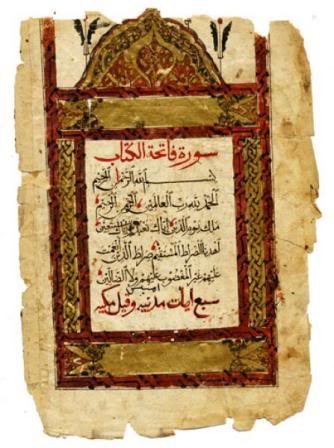 سورة فاتحة الكتاب
بسم الله الرحمن الرحيم
الحمد لله رب العالمين الرحمن الرحيم
ملك يوم الدين اياك نعبد واياك نستعين
اهدنا الصراط المستقيم صراط الذين انعمت
عليهم غير المغضوب عليهم ولا الضالين
امين
سبع ايات مدنية وقيل مكية